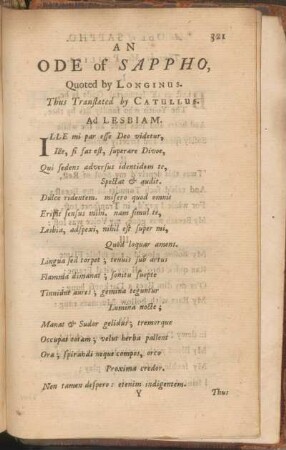 321
AN
ODE of SAPPHO,
Quoted by LONGINUS.
Thus Translated by CATULLUS.
Ad LESBIAM.
ILLE mi par esse Deo videtur,
Ille, si fas est, superare Divos,
Qui sedens adversus identidem te,
Spectat & audit.
Dulce ridentem. misero quod omnis
Eripit sensus mihi. nam simul te,
Lesbia, adspexi, nihil est super mi,
Quod loquar amens.
Lingua sed torpet; tenuis sub artus
Flamma dimanat; sonitu suopte
Tinniunt aures; gemina teguntur
Lumina nocte;
Manat & Sudor gelidus; tremorque
Occupat totam; velut herba pallent
Ora; spirandi neque compos, orco
Proxima credor.
Non tamen despero: etenim indigentem.
Y
Thus